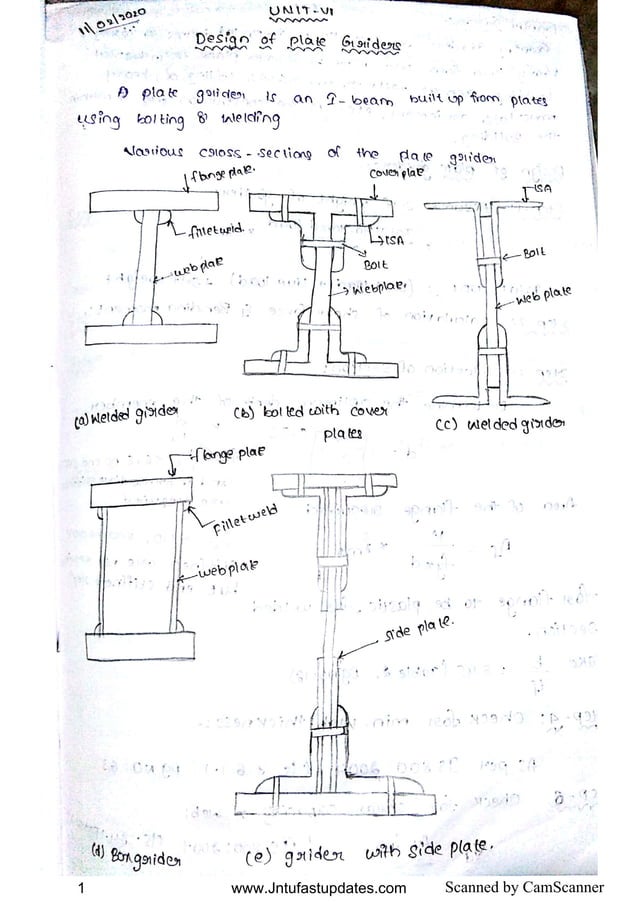 11/02/2020
UNIT-VI
Design of plate Griders
A plate grider is an I-beam built up from plates
using bolting & welding
Various cross-sections of the plate grider
flange plate.
cover plate
ISA
fillet weld.
ISA
Bolt
Bolt
web plate
web plate.
web plate
(a) Welded girder
(b) bolted with cover
plates
(c) welded girder
flange plate
fillet weld
web plate
side plate.
(d) Box grider
(e) grider with side plate.
1
www.Jntufastupdates.com
Scanned by CamScanner